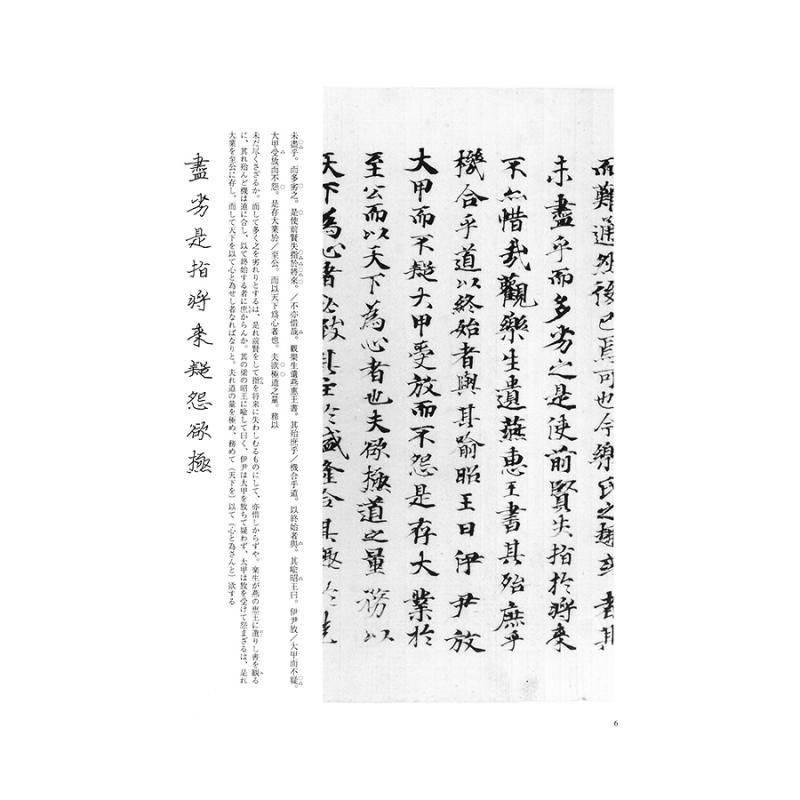 而難通然後已焉可也今樂氏之趣或者其
未盡乎而多劣之是使前賢失指於將來
不亦惜哉觀樂生遺燕惠王書其殆庶乎
機合乎道以終始者與其喻昭王曰伊尹放
大甲而不疑大甲受放而不怨是存大業於
至公而以天下為心者也夫欲極道之量務以
天下為心者必致其主於盛隆合其趣於先
未盡乎。而多劣之。是使前賢失指於將來。／不亦惜哉。觀樂生遺燕惠王書。其殆庶乎／機合乎道。以終始者與。其喩昭王曰。伊尹放／大甲而不疑。
大甲受放而不怨。是存大業於／至公。而以天下爲心者也。夫欲極道之量。務以
未だ尽くさざるか。而して多く之を劣れりとするは、是れ前賢をして指を将来に失わしむるものにして、亦惜しからずや。楽生が燕の恵王に遺りし書を観る
に、其れ殆んど機は道に合し、以て終始する者に庶からんか。其の梁の昭王に喩して曰く、伊尹は大甲を放ちて疑わず、大甲は放を受けて怨まざるは、是れ
大業を至公に存し。而して天下を以て心と為せし者なればなりと。夫れ道の量を極め、務めて（天下を）以て（心と為さんと）欲する
盡劣是指將來疑怨欲極
6